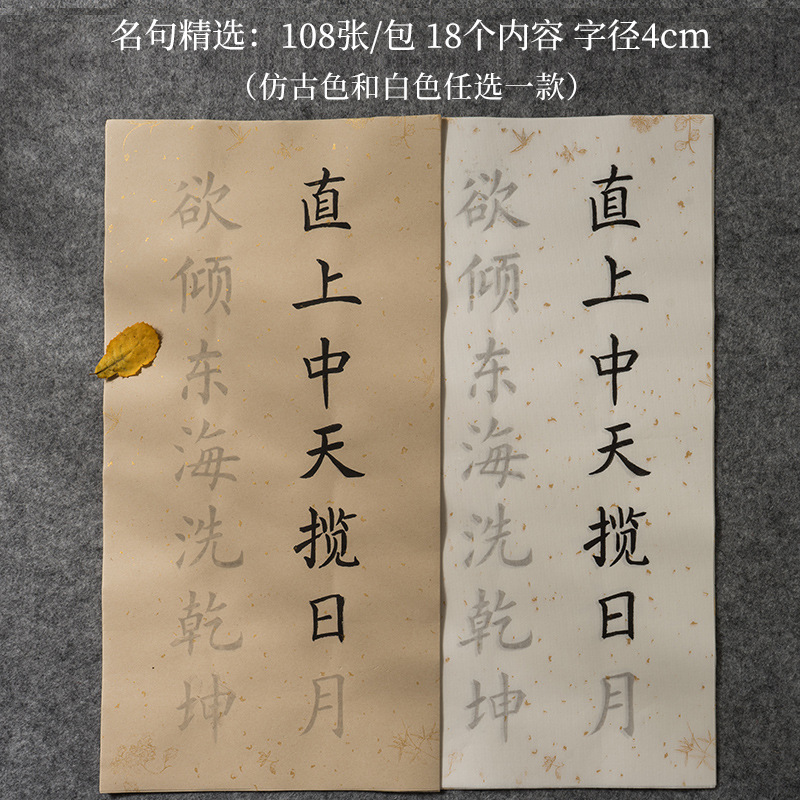 名句精选：108张/包 18个内容 字径4cm
（仿古色和白色任选一款）
直上中天揽日月
欲倾东海洗乾坤
直上中天揽日月
欲倾东海洗乾坤